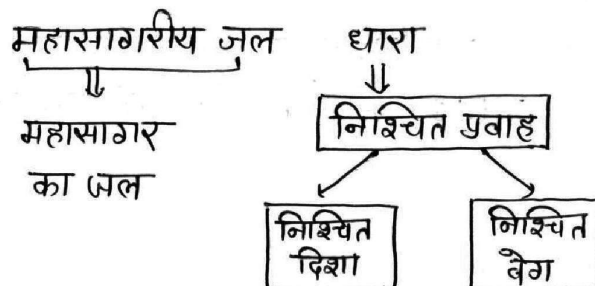 महासागरीय जल धारा
महासागर
का जल
निश्चित प्रवाह
निश्चित
दिशा
निश्चित
वेग